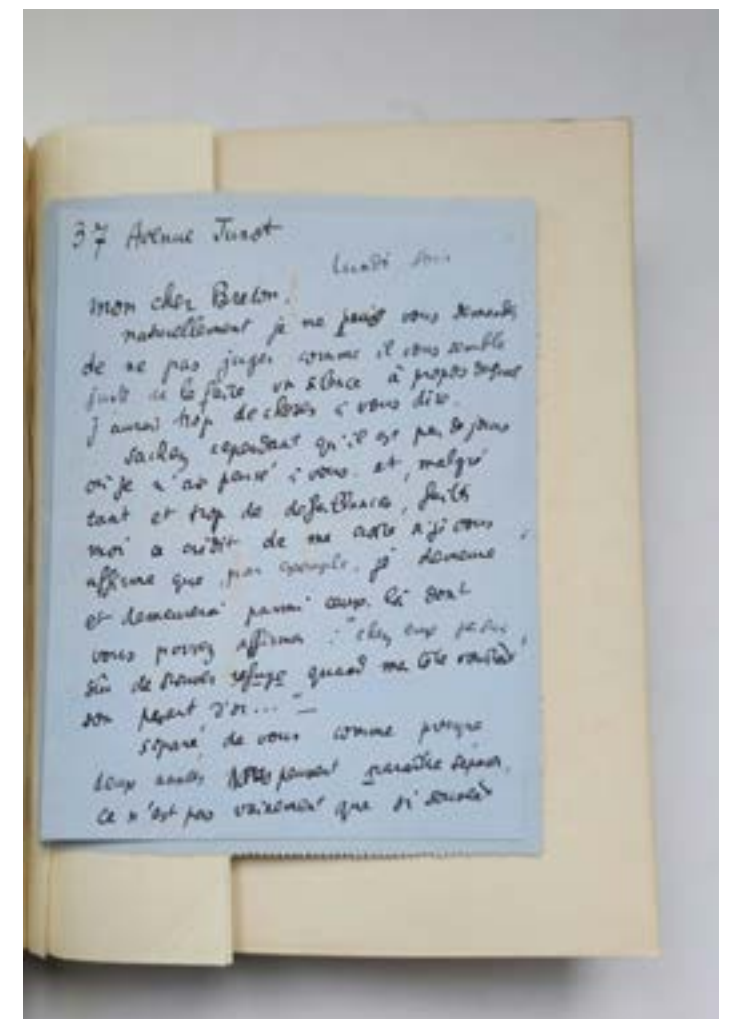 37 Avenue Junot
Lundi soir
mon cher Breton.
naturellement je ne puis vous demander
de ne pas juger comme il vous semble
juste de le faire un silence à propos duquel
j'aurais trop de choses à vous dire.
Sachez cependant qu'il est peu de jours
où je n'ai pensé à vous. et, malgré
tant et trop de défaillances, faites
moi le crédit de me croire si je vous
affirme que par exemple, je demeure,
et demeurerai parmi ceux-là dont
vous pouvez affirmer : "chez eux je suis
sûr de trouver refuge quand ma tête vaudrait
son pesant d'or..."
séparé de vous comme presque
deux années peuvent paraître séparer,
ce n'est pas vainement que si souvent